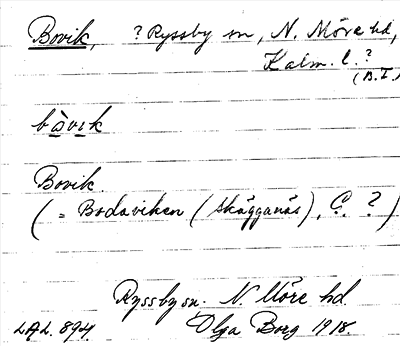 Bovik, ? Ryssby sn, N. Möre hd,
Kalm. l. ?
(B.I.)
bòvik
Bovik.
(= Bodaviken (Skägganäs), C. ?)
Ryssby sn. N. Möre hd.
L.A.L. 894. Olga Borg 1918.